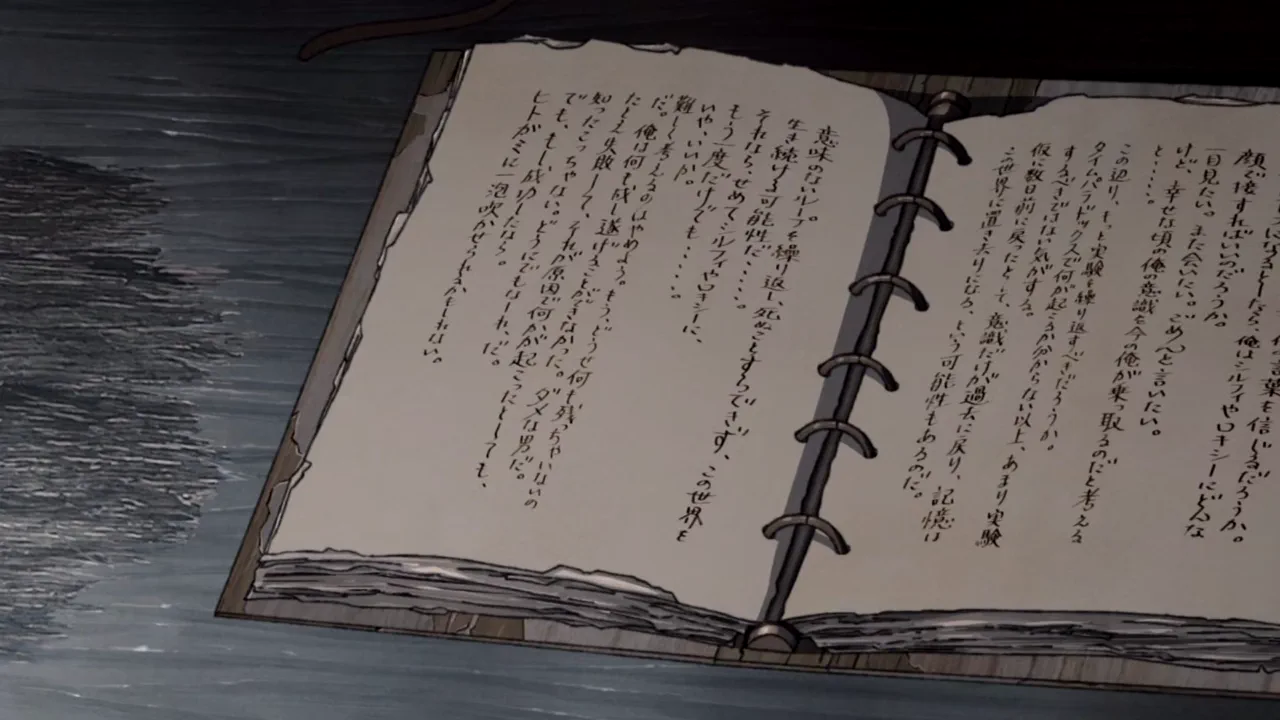 顔で接すればいいのだろうか。
一目見たい。また会いたい。ごめんと言いたい。
けど、幸せな頃の俺の意識を今の俺が乗っ取るのだと考える
と‥‥‥。
この辺り、もっと実験を繰り返すべきだろうか。
タイムパラドックスで何が起こるか分からない以上、あまり実験
するべきではない気がする。
仮に数日前に戻ったとして、意識だけが過去に戻り、記憶は
この世界に置き去りになる、という可能性もあるのだ。
意味のないループを繰り返し、死ぬことすらできず、この世界を
生き続ける可能性だ‥‥‥。
それなら、せめてシルフィやロキシーに、
もう一度だけでも‥‥‥。
いや、いいか。
難しく考えるのはやめよう。もう、どうせ何も残っちゃいないの
だ。俺は何も成し遂げることができなかった。ダメな男だ。
たとえ失敗して、それが原因で何かが起こったとしても、
知ったこっちゃない。どうにでもなーれ、だ。
でも、もし成功したなら。
ヒトガミに一泡吹かせられるかもしれない。